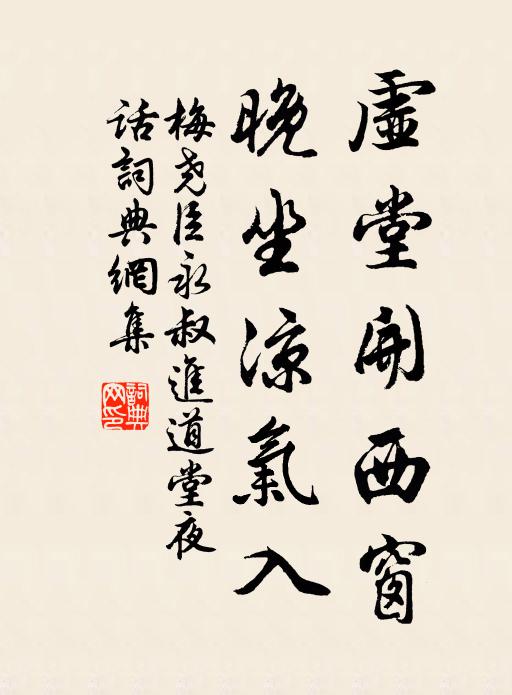 虛堂開西窗
晚坐涼氣入
梅堯臣永叔進道堂夜
话詞典網集
詞典網印